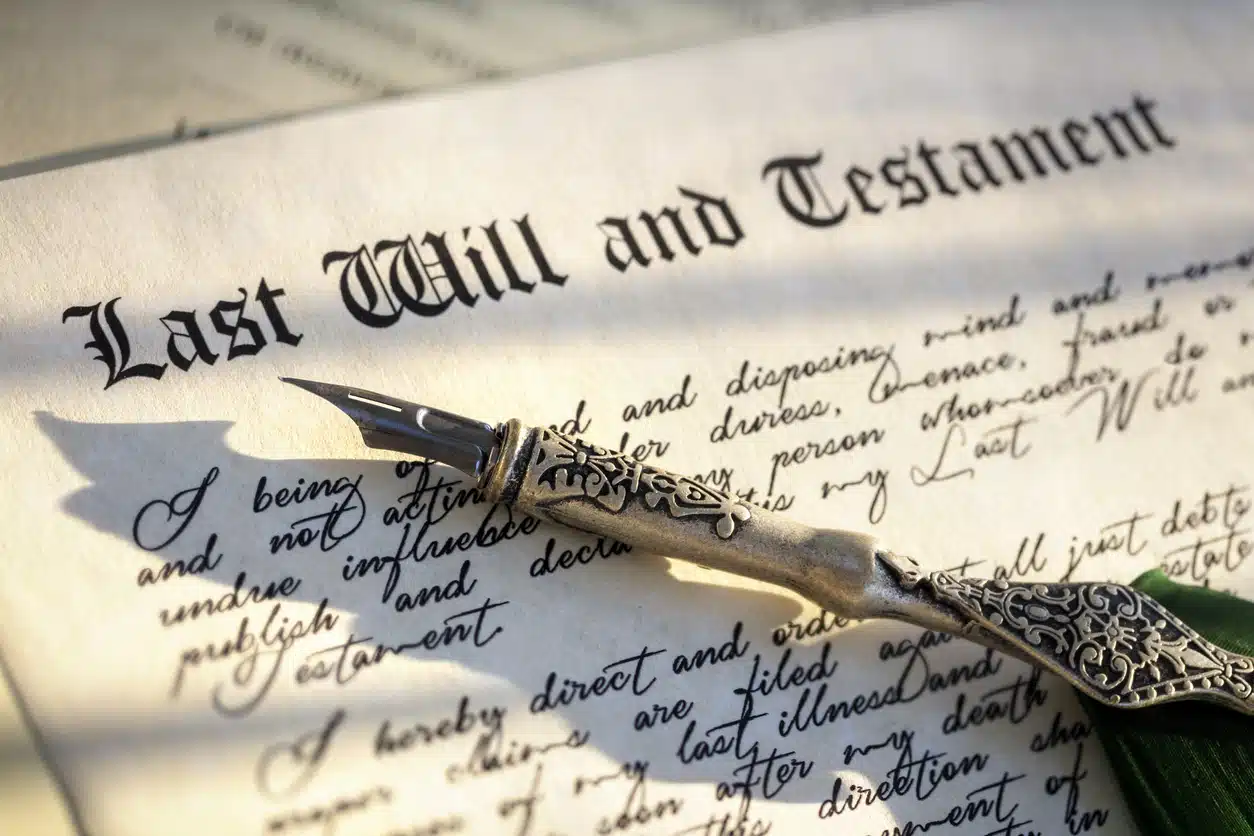 Last Will and Testament
I being of nd and disposing mind and mem
and not acting der duress, menace, fraud or
undue influence my person whomsoever do
publish and decla this my Last Will an
Testament.
I hereby direct and orde all just debts
claims are filed again estate
of my last illness and
soon after my death
this direction sha
ment of
in